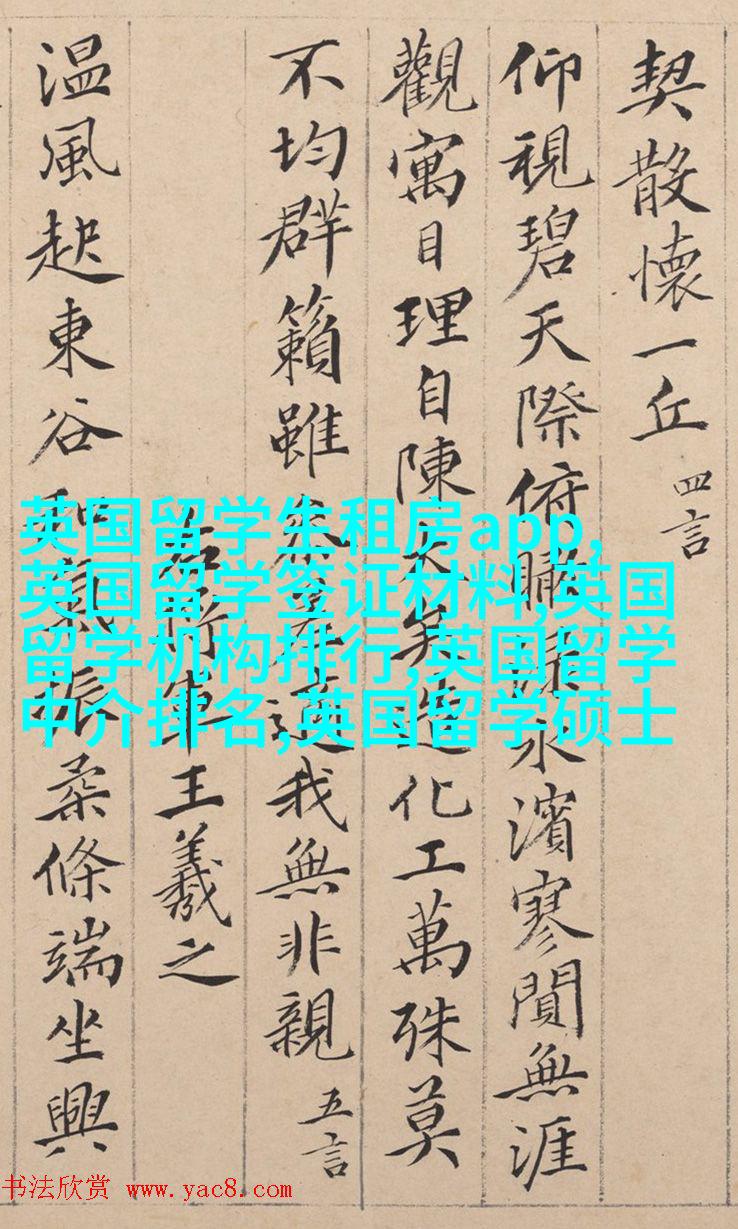 契散懷一丘 四言
仰視碧天際俯瞰水濱寥閴無涯
觀寓目理自陳大矣造化工萬殊莫
不均群籟雖參差適我無非親 五言
右將軍王羲之
温風起東谷和氣振柔條端坐興
英国留学生租房app,
英国留学签证材料,英国
留学机构排行,英国留学
中介排名,英国留学硕士
书法欣赏 www.yac8.com